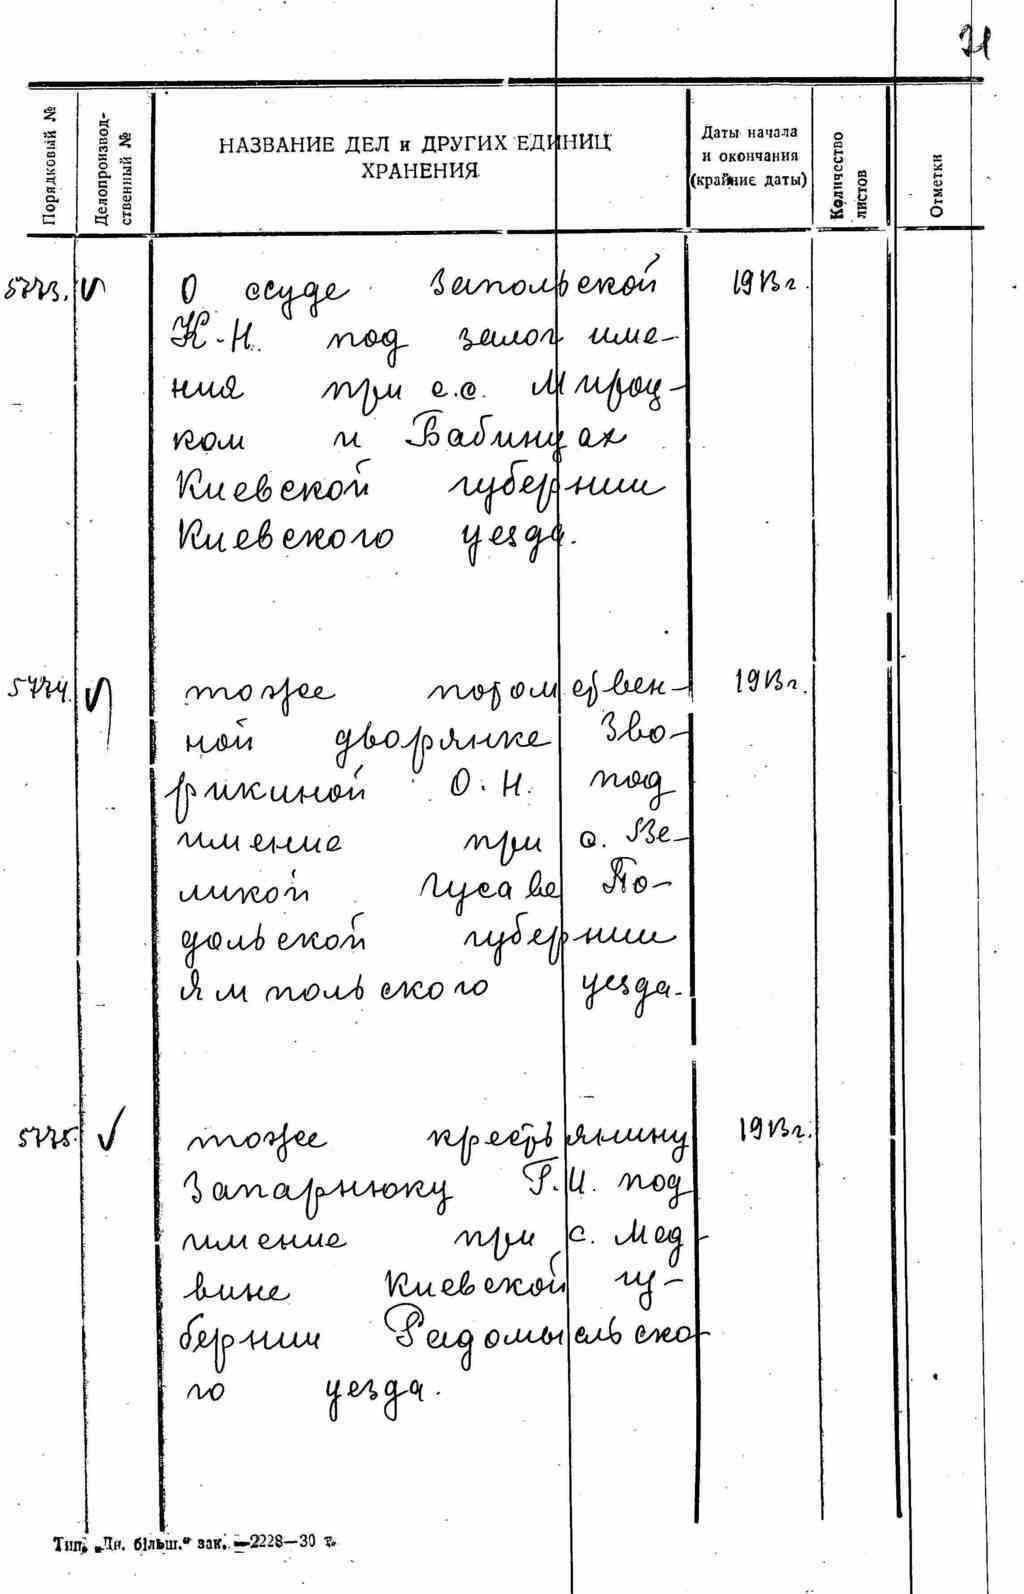 71
Порядковый №
Делопроизвод-
ственный №
НАЗВАНИЕ ДЕЛ и ДРУГИХ ЕДИНИЦ
ХРАНЕНИЯ
Даты начала
и окончания
(крайние даты)
Количество
листов
Отметки
5773.
О ссуде Запольской
1913 г.
К.Н. под залог име-
ния при с.с. Мироц-
ком и Бабинцах
Киевской губернии
Киевского уезда.
5774.
тоже потомствен-
1913 г.
ной дворянке Зво-
рикиной О.Н. под
имение при с. Ве-
ликой Русаве По-
дольской губернии
Ямпольского уезда.
5775.
тоже крестьянину
1913 г.
Запарнюку Г.И. под
имение при с. Мед
вине Киевской гу-
бернии Радомысльско
го уезда.
Тип. „Дн. більш.“ зак. —2228—30 г.